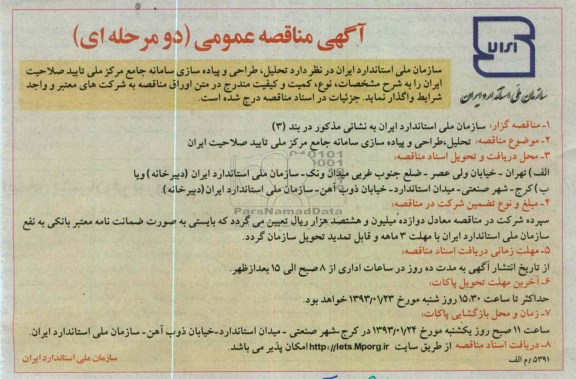 آگهی مناقصه عمومی (دو مرحله ای)
ISIRI
سازمان ملی استاندارد ایران
سازمان ملی استاندارد ایران در نظر دارد تحلیل، طراحی و پیاده سازی سامانه جامع مرکز ملی تایید صلاحیت
ایران را به شرح مشخصات، نوع، کمیت و کیفیت مندرج در متن اوراق مناقصه به شرکت های معتبر و واجد
شرایط واگذار نماید. جزئیات در اسناد مناقصه درج شده است.
۱- مناقصه گزار: سازمان ملی استاندارد ایران به نشانی مذکور در بند (۳)
۲- موضوع مناقصه: تحلیل،طراحی و پیاده سازی سامانه جامع مرکز ملی تایید صلاحیت ایران
۳- محل دریافت و تحویل اسناد مناقصه:
الف) تهران - خیابان ولی عصر - ضلع جنوب غربی میدان ونک- سازمان ملی استاندارد ایران (دبیرخانه) ویا
ب) کرج- شهر صنعتی - میدان استاندارد- خیابان ذوب آهن- سازمان ملی استاندارد ایران (دبیرخانه).
۴- مبلغ و نوع تضمین شرکت در مناقصه:
سپرده شرکت در مناقصه معادل دوازده میلیون و هشتصد هزار ریال تعیین می گردد که بایستی به صورت ضمانت نامه معتبر بانکی به نفع
سازمان ملی استاندارد ایران با مهلت ۳ ماهه و قابل تمدید تحویل سازمان گردد.
۵- مهلت زمانی دریافت اسناد مناقصه:
از تاریخ انتشار آگهی به مدت ده روز در ساعات اداری از ۸ صبح الی ۱۵ بعدازظهر.
۶- آخرین مهلت تحویل پاکات:
حداکثر تا ساعت ۱۵:۳۰ روز شنبه مورخ ۱۳۹۳/۰۱/۲۳ خواهد بود.
۷- زمان و محل بازگشایی پاکات:
ساعت ۱۱ صبح روز یکشنبه مورخ ۱۳۹۳/۰۱/۲۴ در کرج-شهر صنعتی - میدان استاندارد-خیابان ذوب آهن- سازمان ملی استاندارد ایران.
۸- دریافت اسناد مناقصه از طریق سایت http://iets.Mporg.ir امکان پذیر می باشد.
۵۳۹۱/م الف
سازمان ملی استاندارد ایران
ParsNamadData